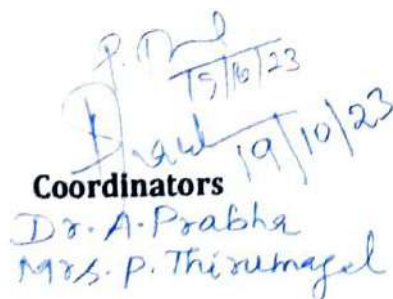 19/10/23
19/10/23
Coordinators
Dr. A. Prabha
Mrs. P. Thirumagal